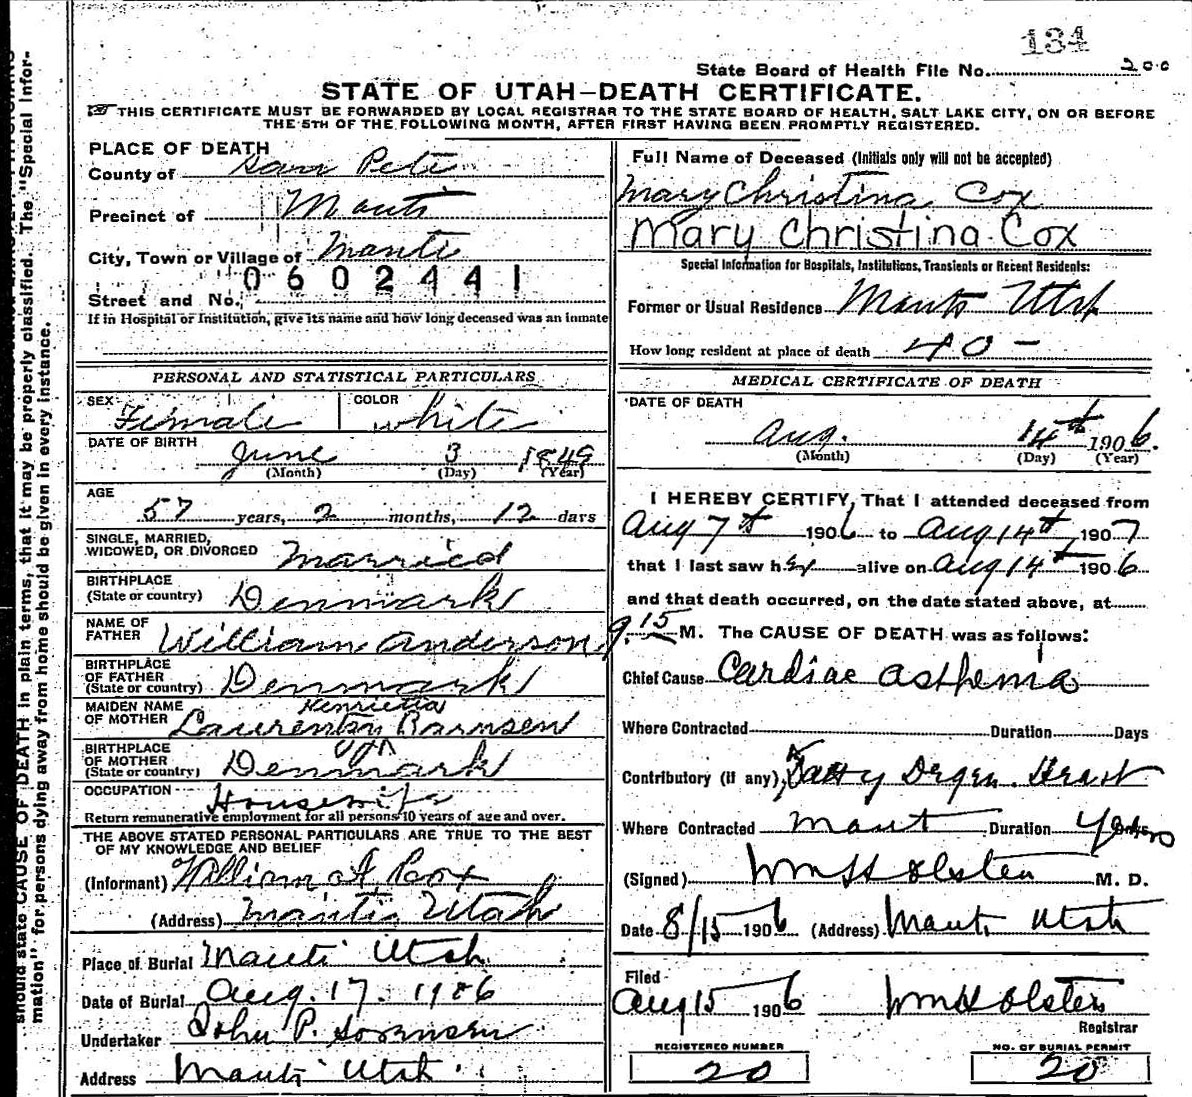 134
State Board of Health File No. 200
STATE OF UTAH—DEATH CERTIFICATE.
THIS CERTIFICATE MUST BE FORWARDED BY LOCAL REGISTRAR TO THE STATE BOARD OF HEALTH, SALT LAKE CITY, ON OR BEFORE
THE 5TH OF THE FOLLOWING MONTH, AFTER FIRST HAVING BEEN PROMPTLY REGISTERED.
PLACE OF DEATH
County of San Pete
Precinct of Manti
City, Town or Village of Manti
0602441
Street and No.
If in Hospital or Institution, give its name and how long deceased was an inmate
PERSONAL AND STATISTICAL PARTICULARS
SEX Female COLOR White
DATE OF BIRTH
June 3 1849
(Month) (Day) (Year)
AGE
57 years, 2 months, 12 days
SINGLE, MARRIED,
WIDOWED, OR DIVORCED Married
BIRTHPLACE
(State or country) Denmark
NAME OF
FATHER William Anderson
BIRTHPLACE
OF FATHER
(State or country) Denmark
MAIDEN NAME Henrietta
OF MOTHER
BIRTHPLACE
OF MOTHER
(State or country) Denmark
OCCUPATION Housewife
Return remunerative employment for all persons 10 years of age and over.
THE ABOVE STATED PERSONAL PARTICULARS ARE TRUE TO THE BEST
OF MY KNOWLEDGE AND BELIEF
(Informant) William A. Cox
(Address) Manti Utah
Place of Burial Manti Utah
Date of Burial Aug. 17. 1906
Undertaker John P. Sorensen
Address Manti Utah
Full Name of Deceased (Initials only will not be accepted)
Mary Christina Cox
Mary Christina Cox
Special Information for Hospitals, Institutions, Transients or Recent Residents:
Former or Usual Residence Manti Utah
How long resident at place of death 40 –
MEDICAL CERTIFICATE OF DEATH
DATE OF DEATH
Aug. 14th 1906.
(Month) (Day) (Year)
I HEREBY CERTIFY, That I attended deceased from
Aug 7th 1906 to Aug 14th, 1907
that I last saw her alive on Aug 14th 1906
and that death occurred, on the date stated above, at
9.15 M. The CAUSE OF DEATH was as follows:
Chief Cause Cardiac asthema
Where Contracted Duration Days
Contributory (if any) Fatty Degen. Heart
Where Contracted Manti Duration
(Signed) Wm H Olsten M. D.
Date 8/15 1906 (Address) Manti Utah
Filed
Aug 15 1906 Wm H Olsten
Registrar
REGISTERED NUMBER NO. OF BURIAL PERMIT
20 20
should state CAUSE OF DEATH in plain terms, that it may be properly classified. The "Special Infor-
mation" for persons dying away from home should be given in every instance.